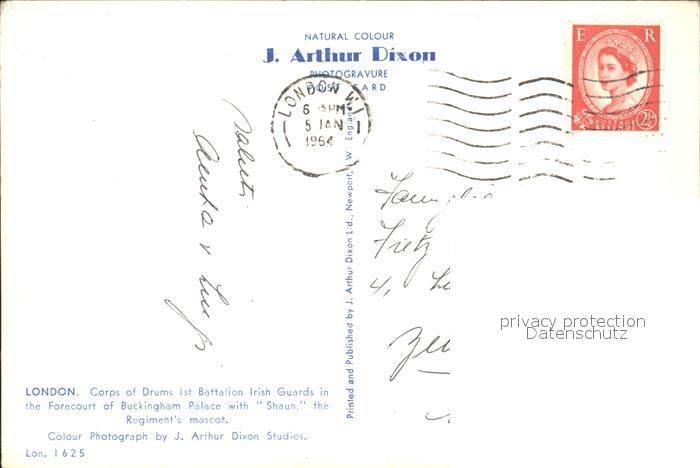 NATURAL COLOUR
J. Arthur Dixon
PHOTOGRAVURE
POST CARD
LONDON W.1
6 15PM
5 JAN
1964
E R
POSTAGE
REVENUE
2½
Saluti
Famiglia
Fietz
4,
privacy protection
Datenschutz
Printed and Published by J. Arthur Dixon Ltd., Newport, I.W. England
LONDON. Corps of Drums 1st Battalion Irish Guards in
the Forecourt of Buckingham Palace with "Shaun," the
Regiment's mascot.
Colour Photograph by J. Arthur Dixon Studios.
Lon. 1625